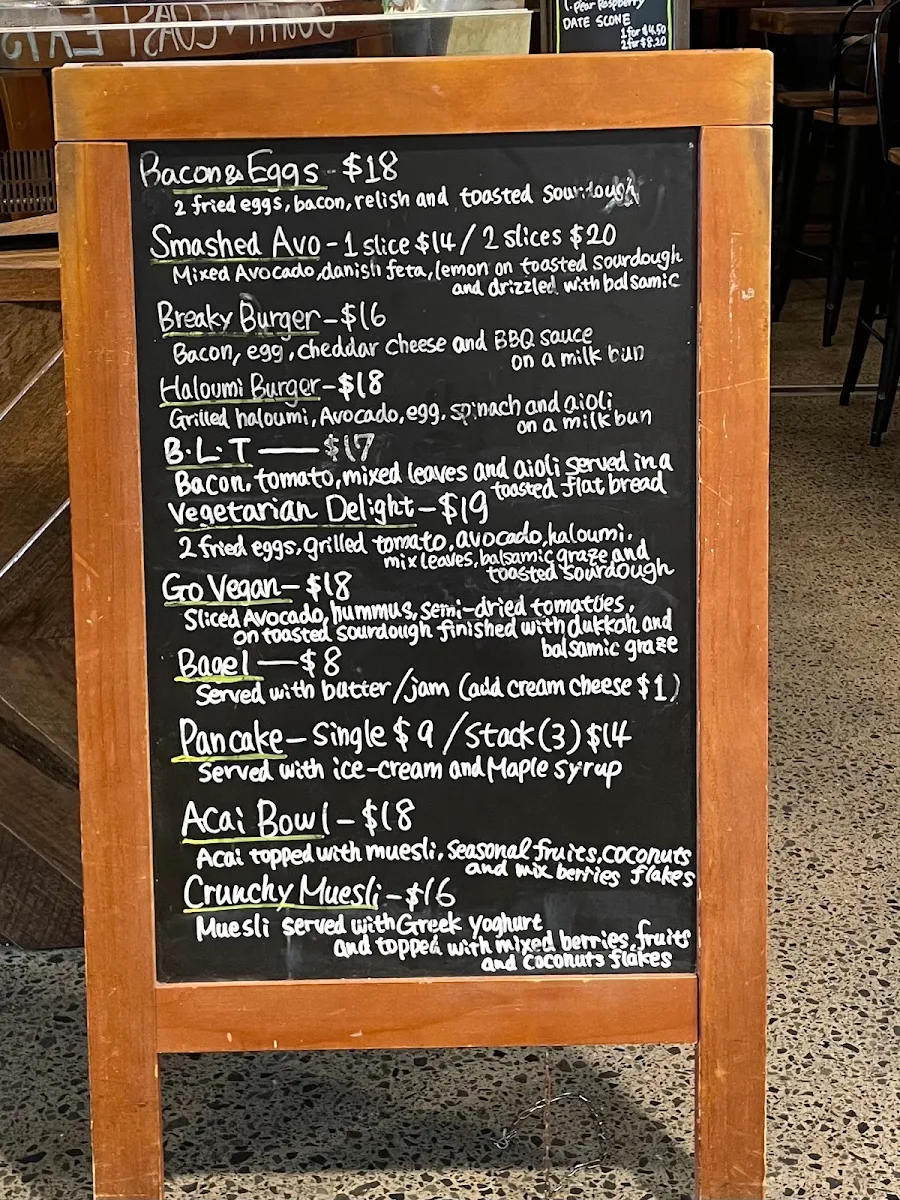 SOUTH COAST EATS
1. Pear Raspberry
DATE SCONE
1 for $4.50
2 for $8.20
Bacon & Eggs - $18
2 fried eggs, bacon, relish and toasted sourdough
Smashed Avo - 1 slice $14 / 2 slices $20
Mixed Avocado, danish feta, lemon on toasted sourdough
and drizzled with balsamic
Breaky Burger - $16
Bacon, egg, cheddar cheese and BBQ sauce
on a milk bun
Haloumi Burger - $18
Grilled haloumi, Avocado, egg, spinach and aioli
on a milk bun
B.L.T — $17
Bacon, tomato, mixed leaves and aioli served in a
toasted flat bread
Vegetarian Delight - $19
2 fried eggs, grilled tomato, avocado, haloumi,
mix leaves, balsamic graze and
toasted sourdough
Go Vegan - $18
Sliced Avocado, hummus, semi-dried tomatoes,
on toasted sourdough finished with dukkah and
balsamic graze
Bagel — $8
Served with butter/jam (add cream cheese $1)
Pancake - Single $9 / Stack (3) $14
Served with ice-cream and Maple syrup
Acai Bowl - $18
Acai topped with muesli, seasonal fruits, coconuts
and mix berries flakes
Crunchy Muesli - $16
Muesli served with Greek yoghurt
and topped with mixed berries, fruits
and coconuts flakes